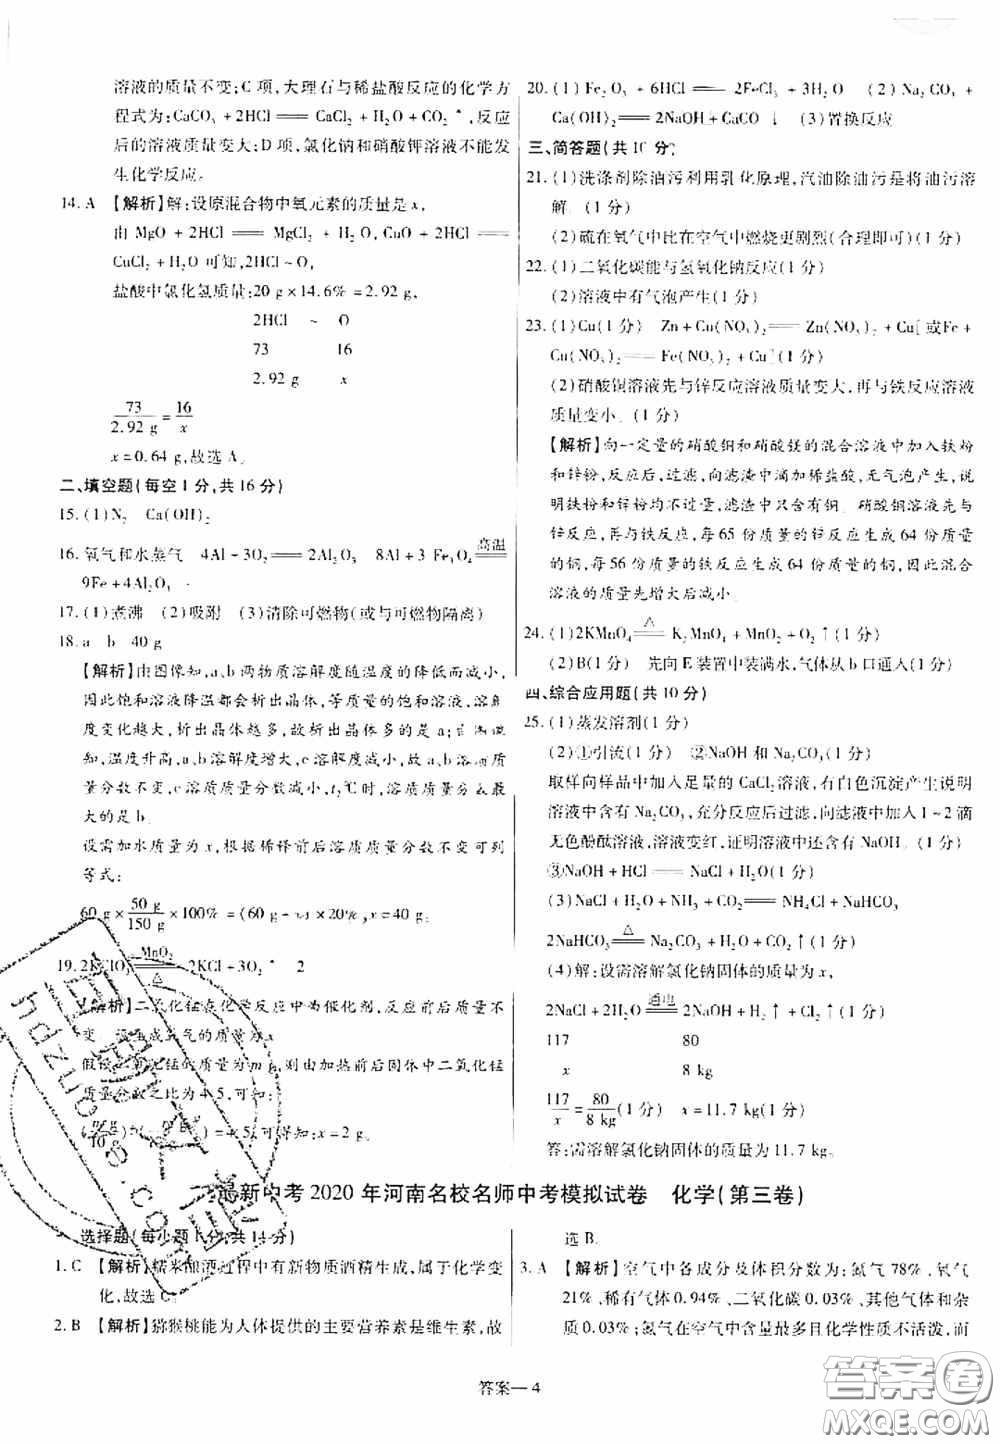 溶液的质量不变;C 项,大理石与稀盐酸反应的化学方
程式为:CaCO₃ +2HCl══CaCl₂ +H₂O +CO₂↑,反应
后的溶液质量变大;D 项,氯化钠和硝酸钾溶液不能发
生化学反应。
14. A 【解析】解:设原混合物中氧元素的质量是 x,
由 MgO + 2HCl══MgCl₂ + H₂O, CuO + 2HCl══
CuCl₂ + H₂O 可知,2HCl ~ O,
盐酸中氯化氢质量:20 g × 14.6% = 2.92 g,
2HCl ~ O
73 16
2.92 g x
73/2.92 g = 16/x
x = 0.64 g,故选 A
二、填空题(每空 1 分,共 16 分)
15. (1)N₂ Ca(OH)₂
16. 氧气和水蒸气 4Al - 3O₂══2Al₂O₃ 8Al + 3 Fe₃O₄═高温═
9Fe + 4Al₂O₃
17. (1)煮沸 (2)吸附 (3)清除可燃物(或与可燃物隔离)
18. a b 40 g
【解析】由图像知,a、b 两物质溶解度随温度的降低而减小,
因此饱和溶液降温都会析出晶体,等质量的饱和溶液,溶解
度变化越大,析出晶体越多,故析出晶体最多的是 a;
知,温度升高,a、b 溶解度增大,c 溶解度减小,故 a、b 溶质质
量分数不变,c 溶质质量分数减小,t₂℃时,溶质质量分数最
大的是 b
设需加水质量为 x,根据稀释前后溶质质量分数不变可列
等式:
60 g × 50 g/150 g × 100% = (60 g + x) × 20%, x = 40 g
19. 2KClO₃═MnO₂/△═2KCl + 3O₂↑ 2
【解析】二氧化锰在化学反应中为催化剂,反应前后质量不
变 设生成氧气的质量为 x
假设二氧化锰的质量为 m g,则加热前后固体中二氧化锰
质量分数之比为 4:5,可知:
= 4:5,可得知:x = 2 g
20. (1)Fe₂O₃ + 6HCl══2FeCl₃ + 3H₂O (2)Na₂CO₃ +
Ca(OH)₂══2NaOH + CaCO₃↓ (3)置换反应
三、简答题(共 10 分)
21. (1)洗涤剂除油污利用乳化原理,汽油除油污是将油污溶
解 (1 分)
(2)硫在氧气中比在空气中燃烧更剧烈(合理即可)(1 分)
22. (1)二氧化碳能与氢氧化钠反应(1 分)
(2)溶液中有气泡产生(1 分)
23. (1)Cu(1 分) Zn + Cu(NO₃)₂══Zn(NO₃)₂ + Cu[或Fe +
Cu(NO₃)₂══Fe(NO₃)₂ + Cu](1 分)
(2)硝酸铜溶液先与锌反应溶液质量变大,再与铁反应溶液
质量变小 (1 分)
【解析】向一定量的硝酸铜和硝酸镁的混合溶液中加入铁粉
和锌粉,反应后,过滤,向滤渣中加稀盐酸,无气泡产生,说
明铁粉和锌粉均不过量,滤渣中只有铜 硝酸铜溶液先与
锌反应,再与铁反应,每 65 份质量的锌反应生成 64 份质量
的铜,每 56 份质量的铁反应生成 64 份质量的铜,因此混合
溶液的质量先增大后减小
24. (1)2KMnO₄═△═K₂MnO₄ + MnO₂ + O₂↑(1 分)
(2)B(1 分) 先向 E 装置中装满水,气体从 b 口通入(1 分)
四、综合应用题(共 10 分)
25. (1)蒸发溶剂(1 分)
(2)①引流(1 分) ②NaOH 和 Na₂CO₃(1 分)
取样向样品中加入足量的 CaCl₂ 溶液,有白色沉淀产生说明
溶液中含有 Na₂CO₃,充分反应后过滤,向滤液中加入 1~2 滴
无色酚酞溶液,溶液变红,证明溶液中还含有 NaOH(1 分)
③NaOH + HCl══NaCl + H₂O(1 分)
(3)NaCl + H₂O + NH₃ + CO₂══NH₄Cl + NaHCO₃
2NaHCO₃═△═Na₂CO₃ + CO₂↑ + H₂O(1 分)
(4)解:设需溶解氯化钠固体的质量为 x,
2NaCl + 2H₂O═通电═2NaOH + H₂↑ + Cl₂↑(1 分)
117 80
x 8 kg
117/x = 80/8 kg(1 分) x = 11.7 kg(1 分)
答:需溶解氯化钠固体的质量为 11.7 kg
最新中考 2020 年河南名校名师中考模拟试卷 化学(第三卷)
选择题(每小题 1 分,共 14 分)
1. C 【解析】糯米酿酒过程中有新物质酒精生成,属于化学变
化,故选 C
2. B 【解析】猕猴桃能为人体提供的主要营养素是维生素,故
选 B
3. A 【解析】空气中各成分及体积分数为:氮气 78%、氧气
21%、稀有气体 0.94%、二氧化碳 0.03%、其他气体和杂
质 0.03%;氮气在空气中含量最多且化学性质不活泼,而
答案— 4
答案圈
MXQE.COM